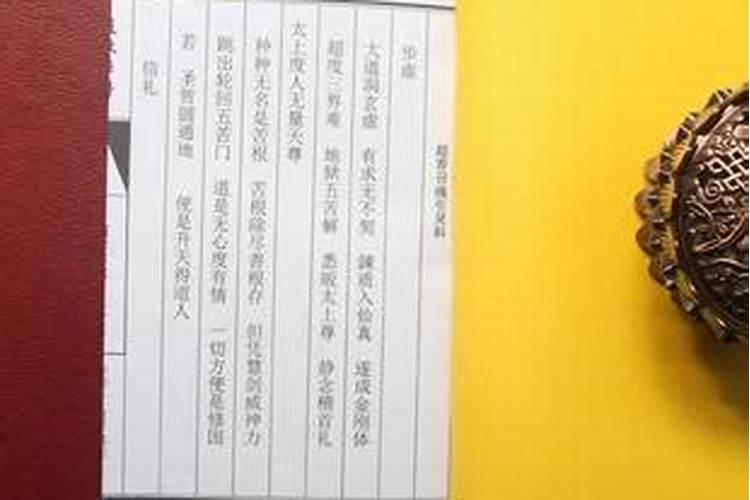 步虚
大道洞玄虚 有求无不契 鍊质入仙真 遂成金刚体
超度三界难 地狱五苦解 悉皈太上尊 静念稽首礼
太上度人无量天尊
种种无名是苦根 苦根除尽善根存 但凭慧剑威神力
跳出轮回五苦门 道是无心度有情 一切方便是修因
若 圣智圆通地 便是升天得道人
信礼